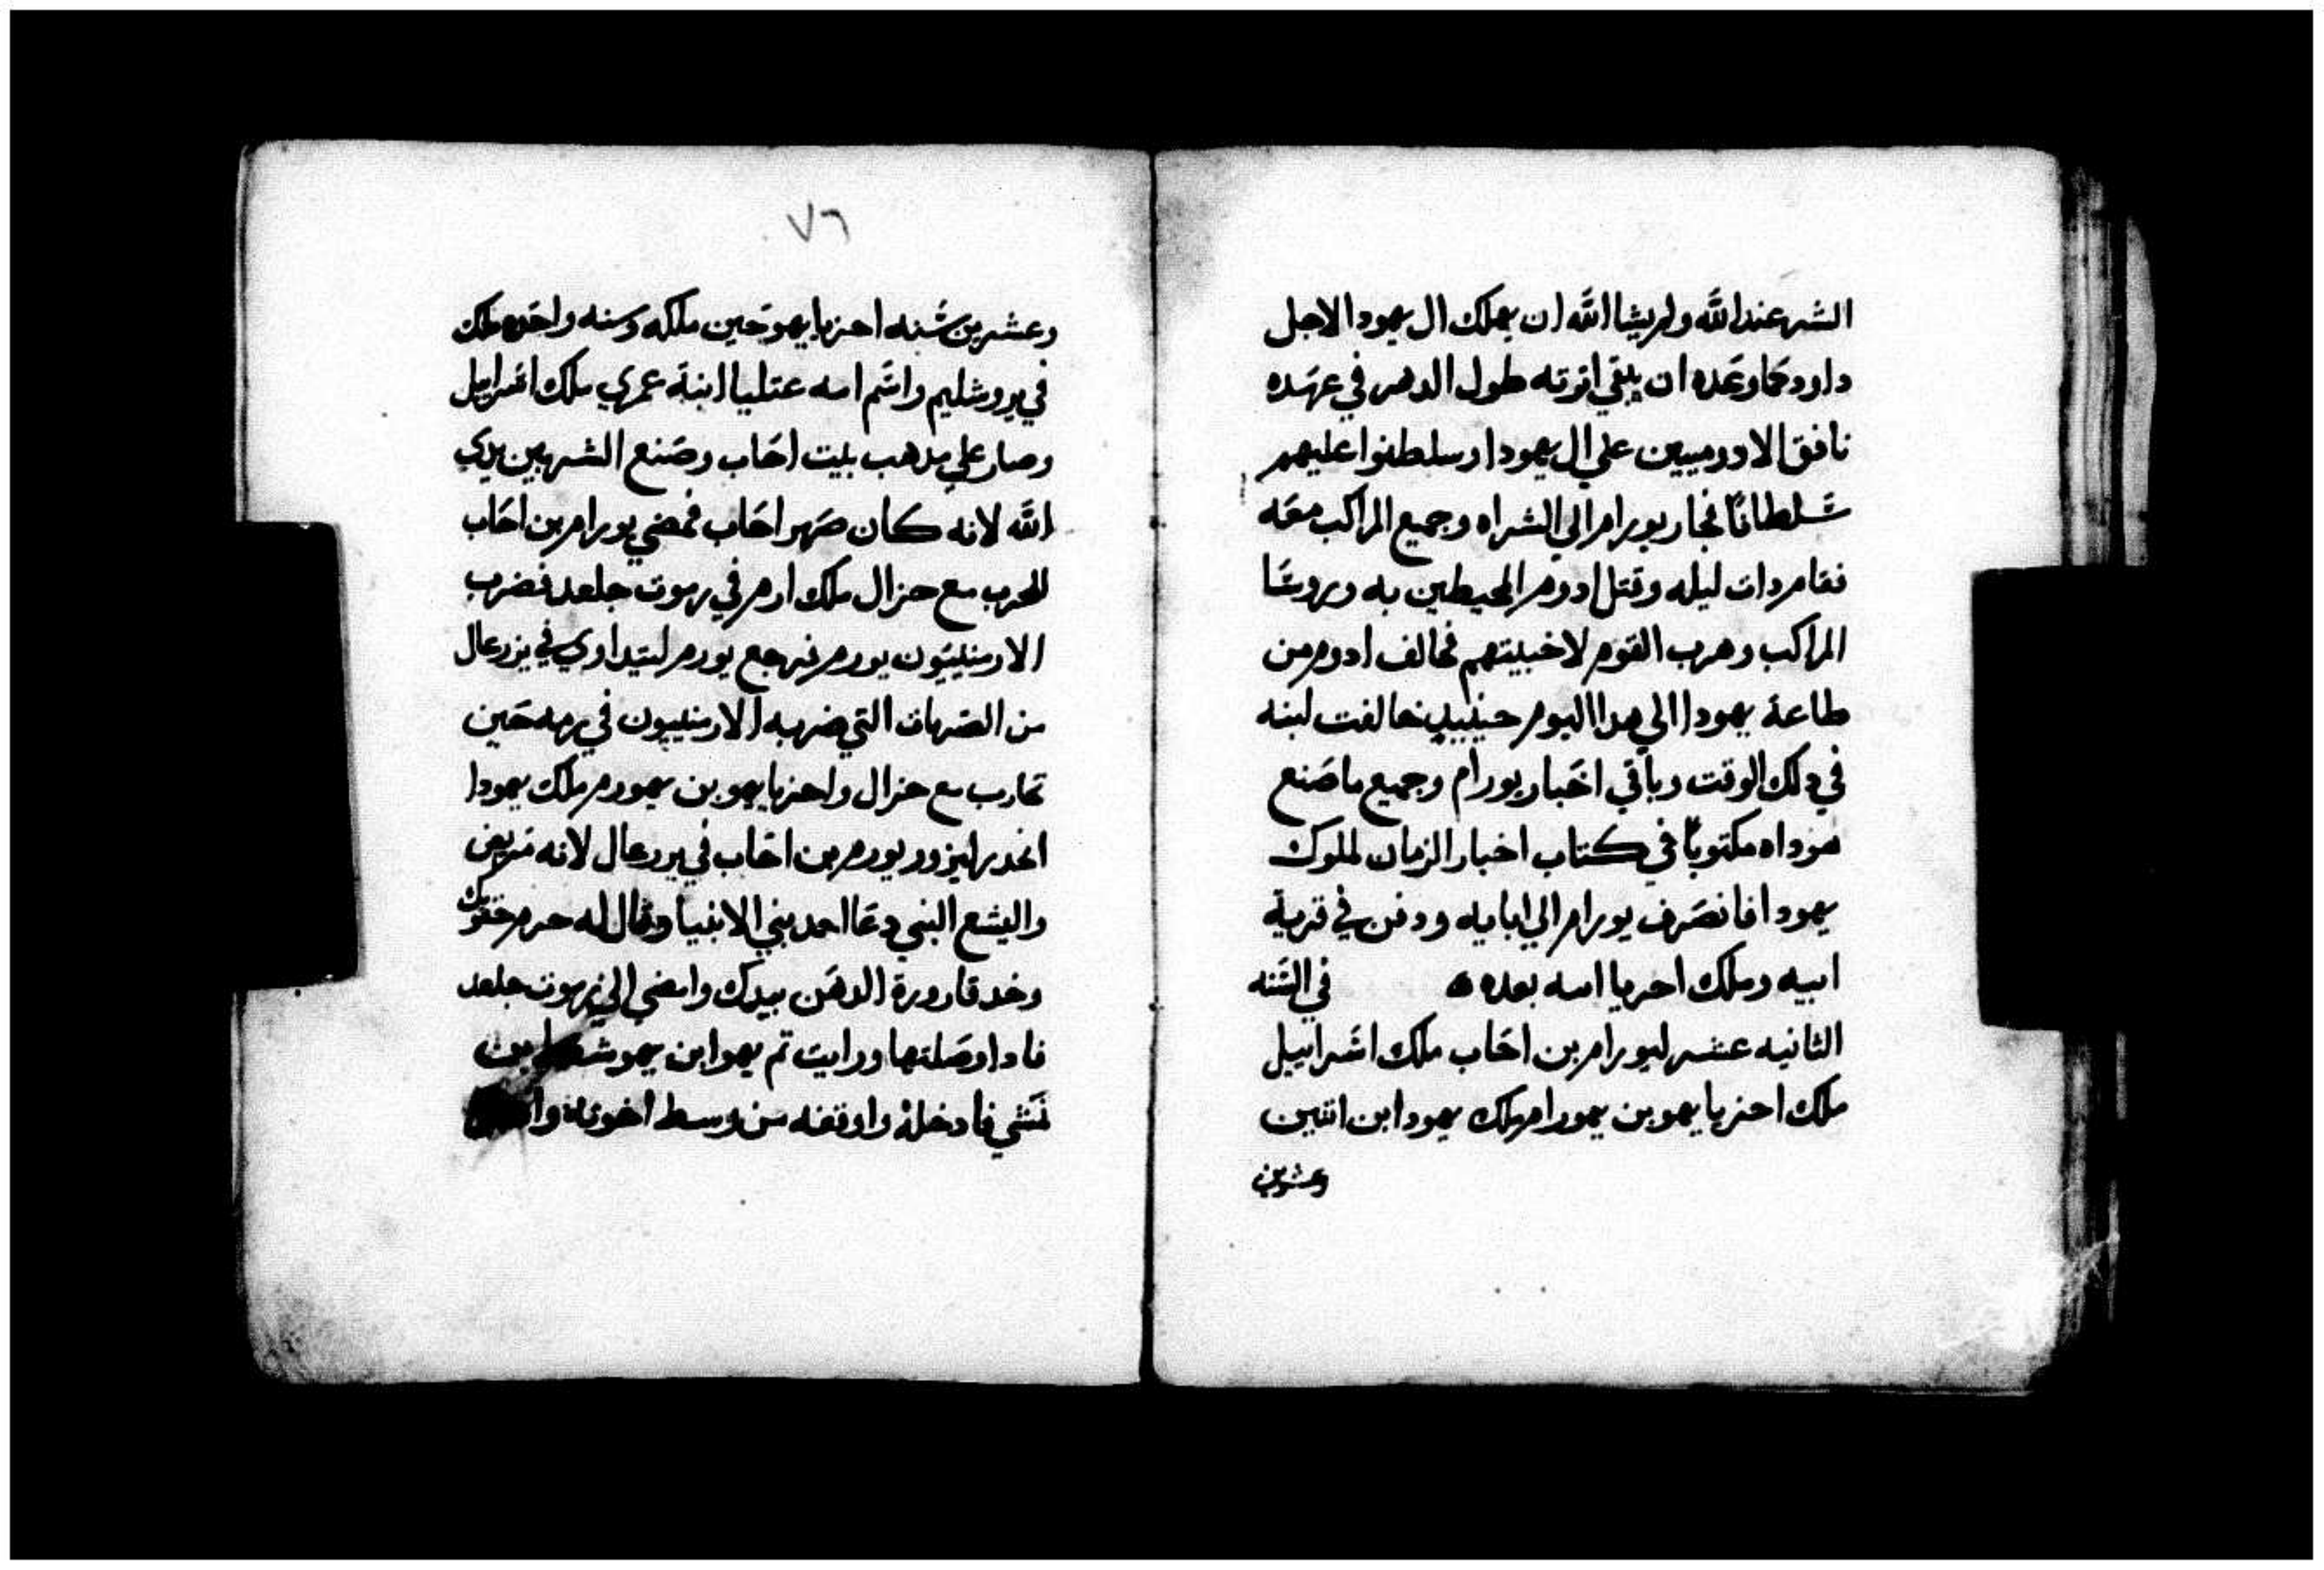 الشر عند الله ولم يشا الله ان يهلك ال يهودا لاجل
داود كما وعده ان يبقي اثرته طول الدهر في عهده
نافق الادوميين علي ال يهودا وسلطنوا عليهم
سلطانًا فجا ربورام الي الشراه وجميع المراكب معه
فقام دات ليله وقتل ادوم المحيطين به وروسا
المراكب وهرب القوم لاخبيتهم فخالف ادوم من
طاعة يهودا الي هدا اليوم حينييد خالفت لبنه
في دلك الوقت وباقي اخبار يورام وجميع ما صنع
هوداه مكتوبًا في كتاب اخبار الزمان لملوك
يهودا فانصرف يورام الي ابايه ودفن في قرية
ابيه وملك احزيا ابنه بعده ه في السنه
الثانيه عشر ليورام بن احاب ملك اسراييل
ملك احزيا يهو بن يهورام ملك يهودا ابن اثنين
وعشرين
٧٦
وعشرين سنه احزيا يهو حين ملكه وسنه واحده ملك
في يروشليم واسم امه عتليا ابنة عمري ملك اسراييل
وصار علي مدهب بيت احاب وصنع الشر بين يدي
الله لانه كان صهر احاب فمضي يورام بن احاب
للحرب مع حزال ملك ارم في رموت جلعد فضرب
الارمنييون يورم فرجع يورم ليتداوي في يزرعال
من الضربات التي ضربه الارمنييون في رمه حين
تحارب مع حزال واحزيا يهو بن يهورم ملك يهودا
انحدر ليزور يورم بن احاب في يزرعال لانه مريض
واليشع النبي دعا احد بني الانبيا وقال له حزم حقويك
وخد قارورة الدهن بيدك وامضي الي رموت جلعد
فادا وصلتها ورايت تم يهو ابن يهوشفط بن
نمشي فادخله واوقفه من وسط اخوته